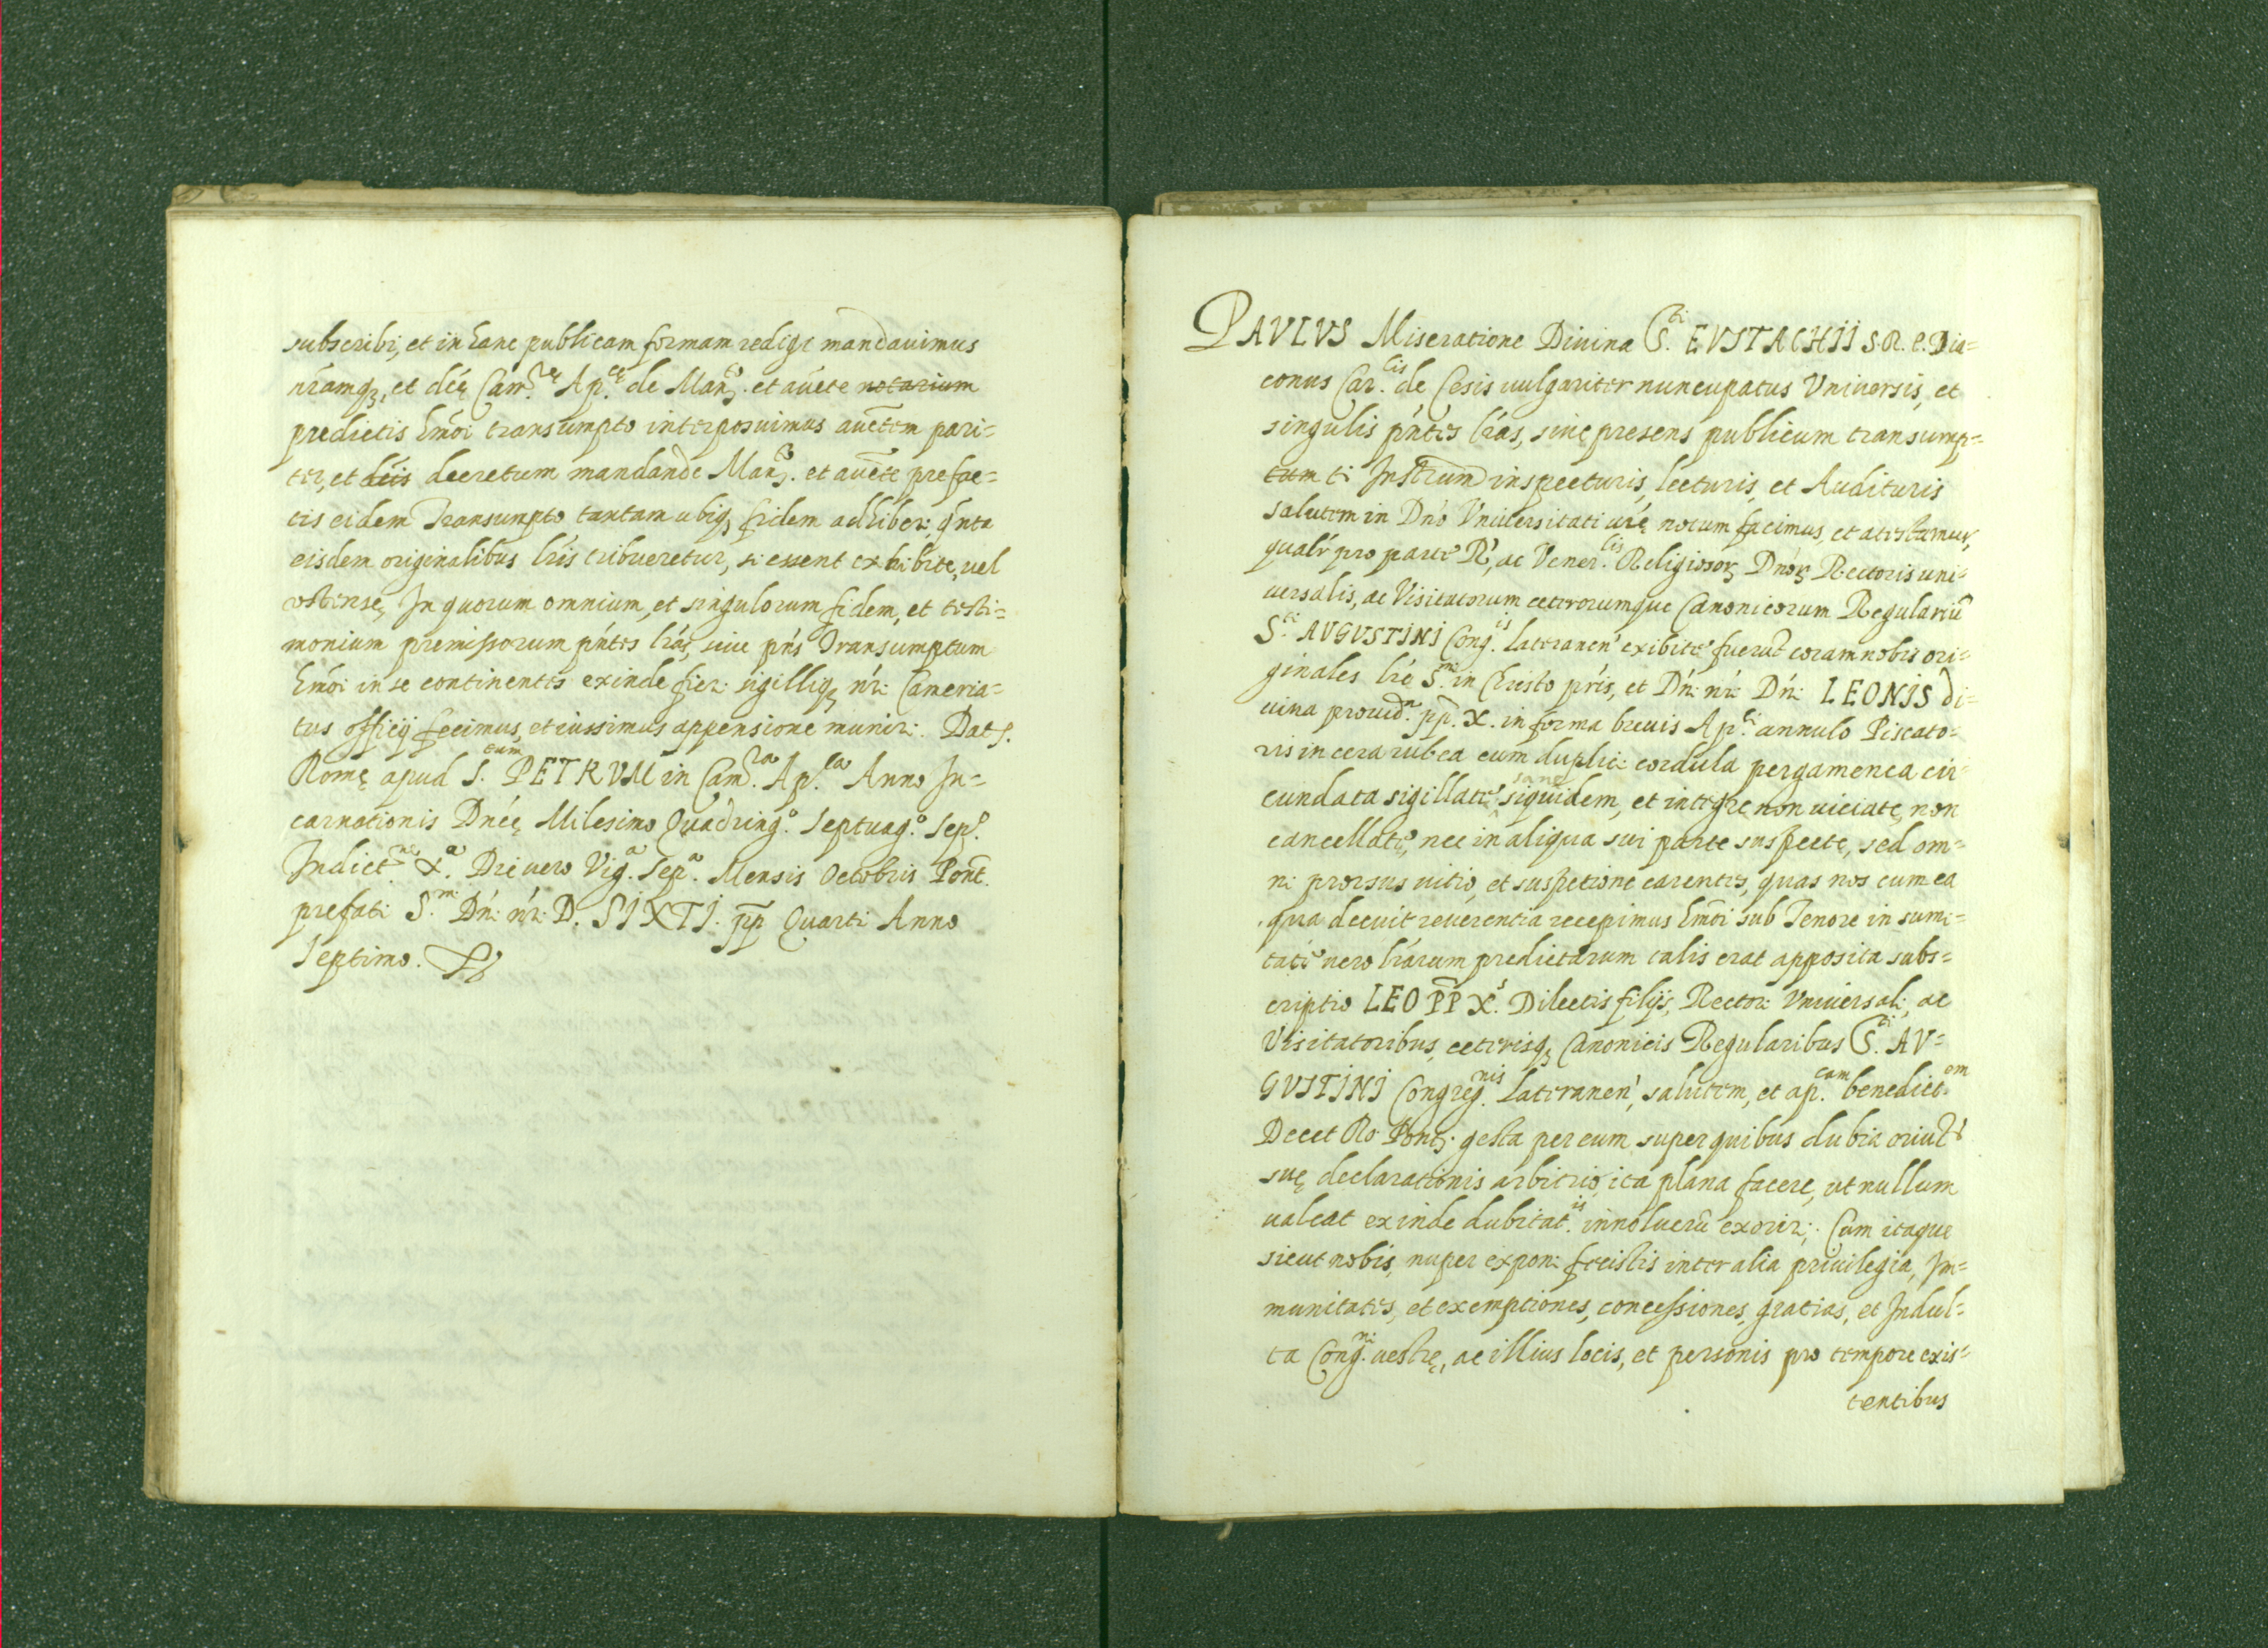 subscribi, et in hanc publicam formam redigi mandavimus
nr̃amq3, et dc̃ę Cam.re Ap.cę de Man.to et auc̃te notarium
predictis hmo̅i transumpto interposuimus auc̃tem pari=
ter, et lr̃is decretum mandande Man.to et auc̃te prefac=
tis eidem Transumpto tantam ubiq3 fidem adhiberi, qn̄ta
eisdem originalibus lr̃is tribueretur, si essent exhibitę, vel
ostensę, In quorum omnium, et singulorum fidem, et testi=
monium premissorum pn̄tes lr̃as, sive pn̄s Transumptum
hmo̅i in se continentes exinde fieri sigilliq3 nr̃i Cameria=
tus officij fecimus, et iussimus appensione muniri. Dat.
Romę apud S. PETRVM cum in Cam.ra Ap.ca Anno In=
carnationis Dn̄icę Milesimo Quadring.o Septuag.o Sep.o
Indict.ne X.a Die vero Vig.a Sep.a Mensis Octobris Pont.
prefati S.mi Dn̄i nr̃i D. SIXTI. pp Quarti Anno
Septimo.
PAVLVS Miseratione Divina S.ti EVSTACHII S.R.E. Dia=
conus Car.lis de Cesis vulgariter nuncupatus Vniversis, et
singulis pn̄tes lr̃as, sive presens publicum transump=
tum ti Instrum̄ inspecturis, lecturis, et Audituris
salutem in Dn̄o Vniversitati vr̃ę notum facimus, et atestamur,
qualr̃ pro parte R., ac Vener.lis Religiosor3 Dn̄or3 Rectoris uni=
versalis, ac Visitatorum ceterorumque Canonicorum Regulariū
S.ti AVGVSTINI Cong.is lateranen' exibite fuerūt coram nobis ori=
ginales lr̃ę S.mi in Christo pr̃is, et Dn̄i nr̃i Dn̄i LEONIS di=
vina provid.a pp. X. in forma brevis Ap.ci annulo Piscato=
ris in cera rubea cum duplici cordula pergamenea cir=
cundata sigillatę sane siquidem, et integre non viciatę, non
cancellatę, nec in aliqua sui parte suspecte, sed om=
ni prorsus vitio, et suspetione carentes, quas nos cum ea
qua decuit reverentia recepimus hmo̅i sub Tenore in sumi=
tate vero lr̃arum predictarum talis erat apposita subs=
criptio LEO PP X.s Dilectis filijs, Rectori Vniversali, ac
Visitatoribus, ceterisq3 Canonicis Regularibus S.ti AV=
GVSTINI Congreg.nis Lateranen', salutem, et ap.cam benedict.om
Decet Ro: Pont. gesta per eum super quibus dubia oriūtr
suę declarationis arbitrio, ita plana facere, ut nullum
valeat exinde dubitat.is involucrū exoriri; Cum itaque
sicut nobis, nuper exponi fecistis inter alia privilegia, Im=
munitates, et exemptiones, concessiones, gratias, et Indul=
ta Cong.ni vestrę, ac illius locis, et personis pro tempore exis=
tentibus